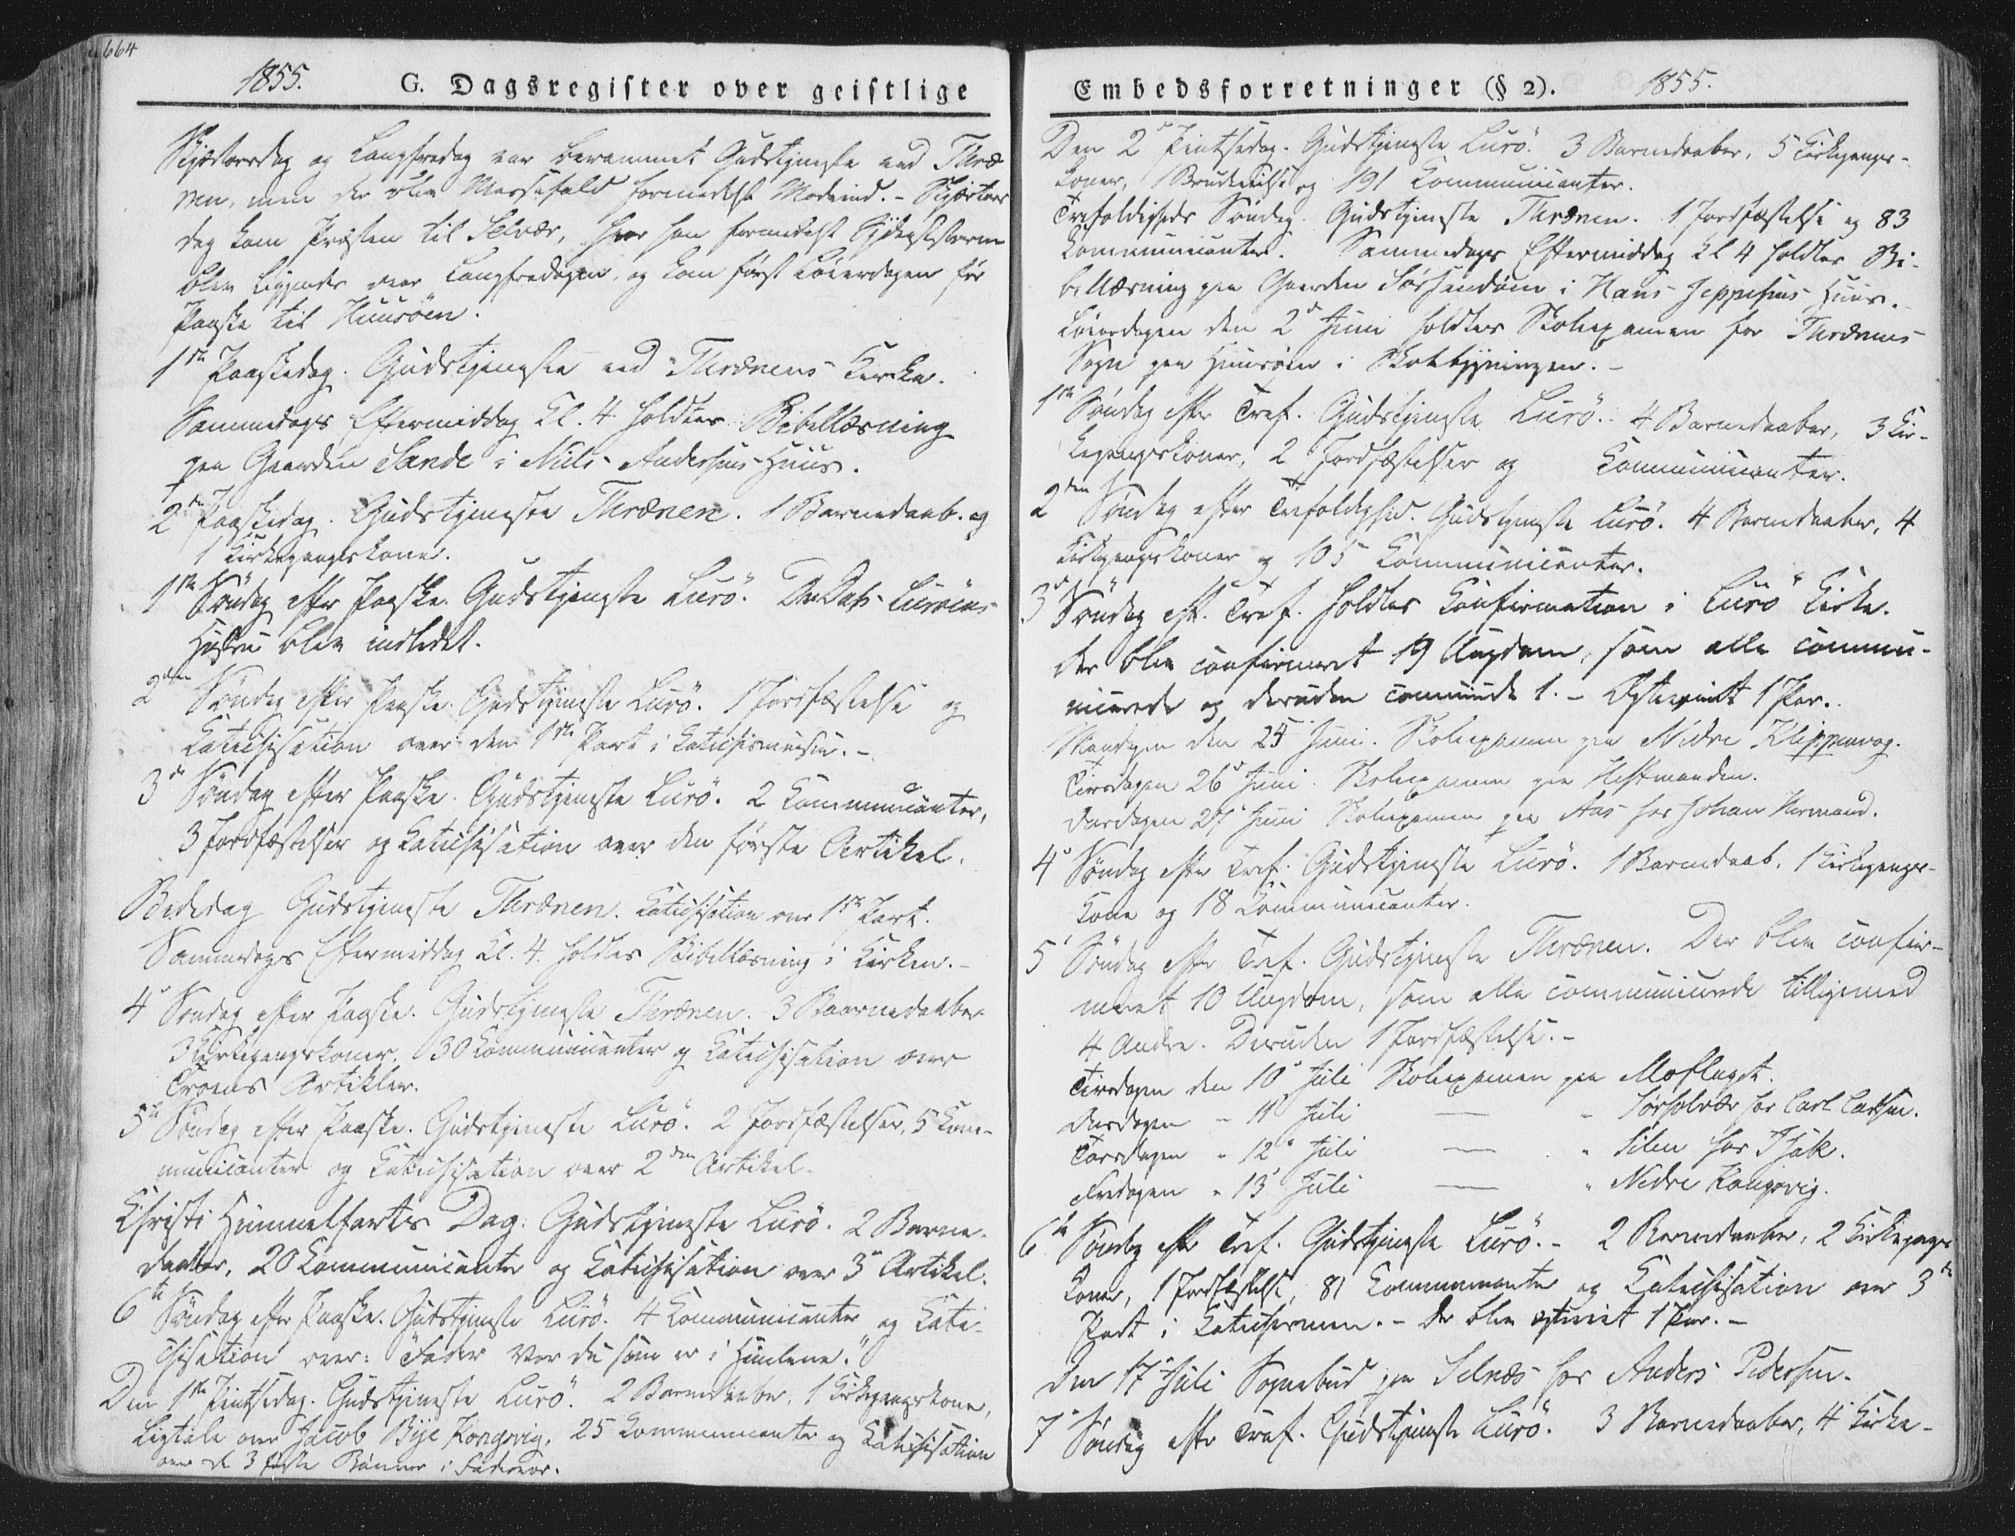 664
1855.
G. Dagsregister over geistlige
Skjærtorsdag og Langfredag var berammet Gudstjeneste ved Thræ
nen, men der blev Messefald formedelst Modvind. - Skjærtors
dag kom Præsten til Selvær, hvor han formedelst
blev liggende over Langfredagen, og kom først Løverdagen før
Paaske til Huusöen.
1ste Paaskedag. Gudstjeneste ved Thrænens Kirke.
Sammedags Eftermiddag Kl. 4 holdtes Bibellæsning
paa Gaarden Sande i Niels Andersens Huus.
2den Paaskedag. Gudstjeneste Thrænen. 1 Barnedaab og
1 Kirkegangskone.
1ste Söndag efter Paaske. Gudstjeneste Lurö. Lurøens
Hustru blev indledet.
2den Söndag efter Paaske. Gudstjeneste Lurö. 1 Jordfæstelse og
Katechisation over den 1ste Part i Katechismusen. -
3die Söndag efter Paaske. Gudstjeneste Lurö. 2 Kommunicanter,
3 Jordfæstelser og Katechisation over den første Artikel.
Bededag Gudstjeneste Thrænen. Katechisation over 1ste Part.
Sammedags Eftermiddag Kl. 4. holdtes Bibellæsning i Kirken. -
4de Söndag efter Paaske. Gudstjeneste Thrænen. 3 Baarnedaaber
3 Kirkegangskoner, 30 Kommunicanter og Katechisation over
Troens Artikler.
5te Söndag efter Paaske. Gudstjeneste Lurö. 2 Jordfæstelser, 5 Kom-
municanter og Katechisation over 2den Artikel.
Christi Himmelfarts Dag. Gudstjeneste Lurö. 2 Barne-
daaber, 20 Kommunicanter og Katechisation over 3die Artikel.
6te Söndag efter Paaske. Gudstjeneste Lurö. 4 Kommunicanter og Kate-
chisation over: "Fader vor du som er i Himlene."
Den 1ste Pintsedag. Gudstjeneste Lurö. 2 Barnedaaber, 1 Kirkegangskone,
Ligtale over Jacob Bye Kongsvig, 25 Kommunicanter og Katechisation
over de 3 første Bönner i Fadervor.
Embedsforretninger (§ 2).
1855.
Den 2den Pintsedag. Gudstjeneste Lurö. 3 Barnedaaber, 5 Kirkegangs-
koner, 1 Brudevielse og 191 Kommunicanter.
Trefoldigheds Söndag. Gudstjeneste Thrænen. 1 Jordfæstelse og 83
Kommunicanter. Sammedags Eftermiddag Kl 4 holdtes Bi-
bellæsning paa Gaarden i Hans Jeppesens Huus.
Löverdagen den 2den Juni holdtes Skoleexamen for Thrænens
Sogn paa Huusöen i -
1ste Söndag efter Tref. Gudstjeneste Lurö. 4 Barnedaaber, 3 Kir-
kegangskoner, 2 Jordfæstelser og Kommunicanter.
2den Söndag efter Trefoldighed. Gudstjeneste Lurö. 4 Barnedaaber, 4
Kirkegangskoner og 105 Kommunicanter.
3die Söndag eft. Tref. holdtes Confirmation i Lurö Kirke.
Der blev confirmeret 19 Ungdom, som alle commu-
nicerede og desuden 1. - Ægteviet 1 Par.
Mandagen den 25 Juni. Skoleexamen paa Nedre Klippenvog.
Tirsdagen 26de Juni. Skoleexamen paa Hestmanden.
Onsdagen 27de Juni Skoleexamen paa Aas hos Johan Normand.
4de Söndag efter Tref. Gudstjeneste Lurö. 1 Barnedaab, 1 Kirkegangs-
kone og 18 Kommunicanter.
5te Söndag efter Tref. Gudstjeneste Thrænen. Der blev confir-
meret 10 Ungdom, som alle communicerede tilligemed
4 Andre. Desuden 1 Jordfæstelse. -
Tirsdagen den 10de Juli Skoleexamen paa Moflaget.
Onsdagen - 11te Juli — " hos Carl Carlsen.
Torsdagen " 12te Juli — " Silen hos Isak.
Fredagen " 13de Juli — " Nedre Kongsvig.
6te Söndag efter Tref. Gudstjeneste Lurö. - 2 Barnedaaber, 2 Kirkegangs
koner, 1 Jordfæstelse, 81 Kommunicanter og Katechisation over 3die
Part i Katechismen. - Der blev ægteviet 1 Par. -
Den 17de Juli Sognebud paa Selnæs hos Anders Pedersen.
7de Söndag efter Tref. Gudstjeneste Lurö. 3 Barnedaaber, 4 Kirke-